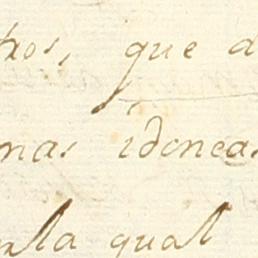 tros, que d
nas idoneas
nla qual